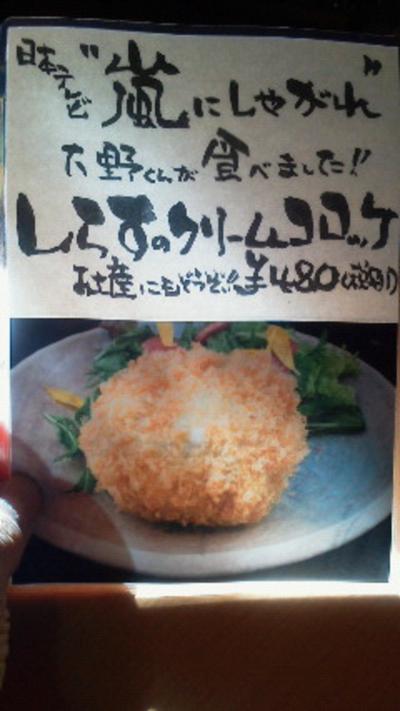 日本テレビ "嵐にしやがれ"
大野くんが食べました!!
しらすのクリームコロッケ
お土産にもどうぞ!! ¥480(税別)